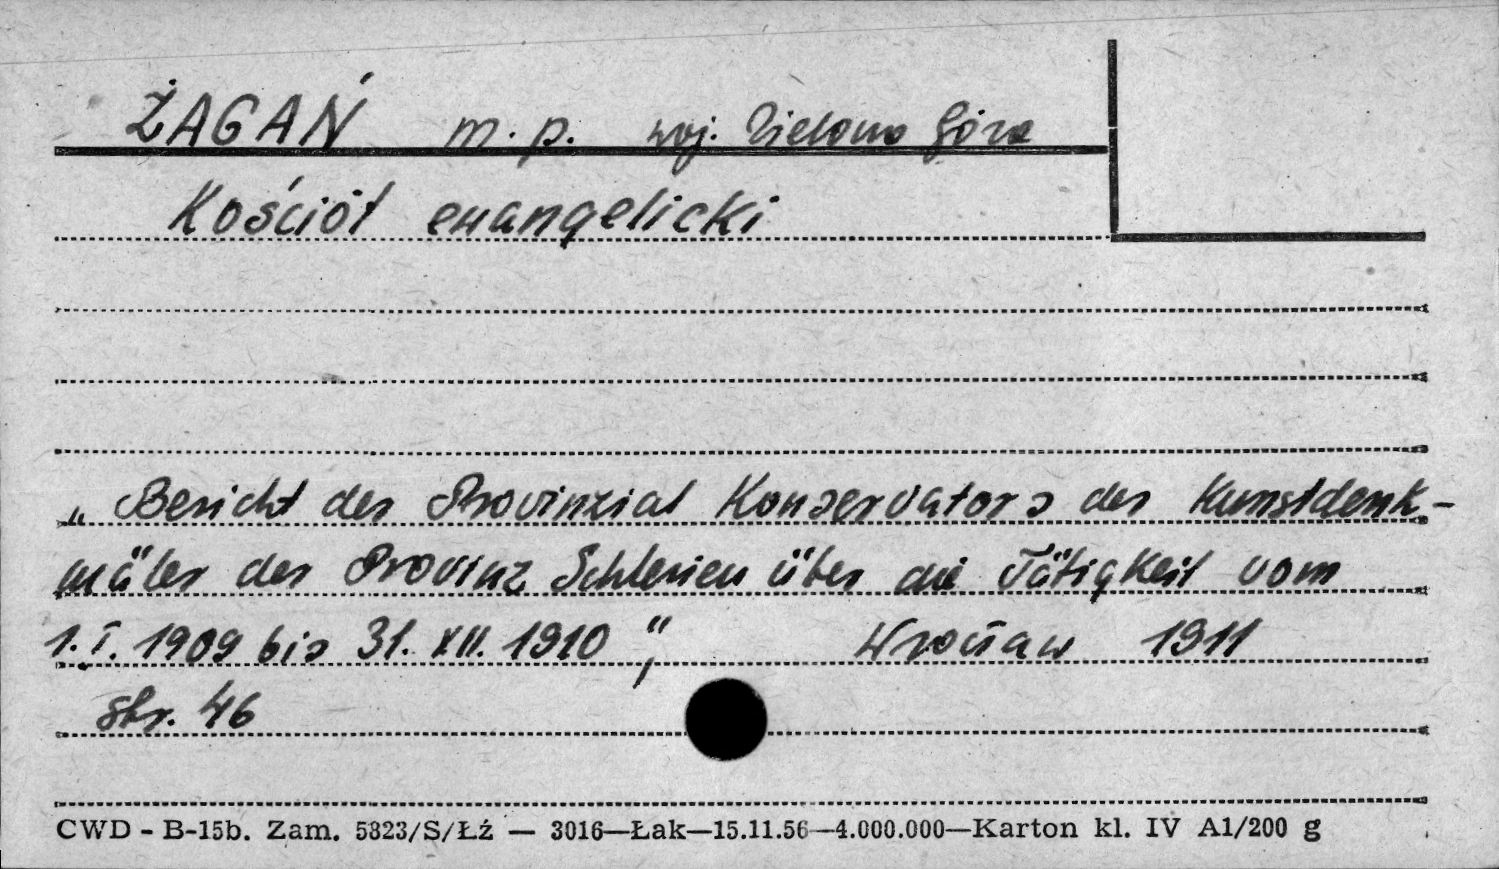 ŻAGAŃ m. p. woj. Zielona Góra
Kościół ewangelicki
„Bericht des Provinzial Konservators der Kunstdenk-
mäler der Provinz Schlesien über die Tätigkeit vom
1. I. 1909 bis 31. XII. 1910", Wrocław 1911
Str. 46
CWD - B-15b. Zam. 5323/S/Łź — 3016—Łak—15.11.56—4.000.000—Karton kl. IV A1/200 g